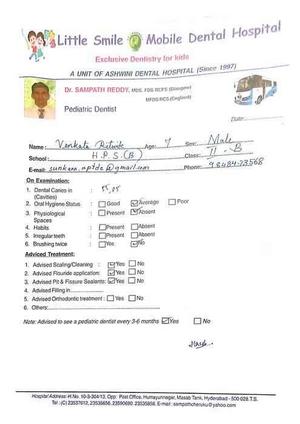 Little Smile Mobile Dental Hospital
Exclusive Dentistry for kids
A UNIT OF ASHWINI DENTAL HOSPITAL (Since 1997)
Dr. SAMPATH REDDY, MDS, FDS RCPS (Glasgow)
MFDS RCS (England)
Pediatric Dentist
Date:
Name: Venkata Age: 7 Sex: Male
School: H.P.S.(B) Class: II-B
E-mail: @gmail.com Phone:
On Examination:
1. Dental Caries in (Cavities) : 55, 65
2. Oral Hygiene Status : Good Average Poor
3. Physiological Spaces : Present Absent
4. Habits : Present Absent
5. Irregular teeth : Present Absent
6. Brushing twice : Yes No
Adviced Treatment:
1. Advised Scaling/Cleaning : Yes No
2. Advised Flouride application: Yes No
3. Advised Pit & Fissure Sealants: Yes No
4. Advised Filling in
5. Advised Orthodontic treatment : Yes No
6. Others:
Note: Advised to see a pediatric dentist every 3-6 months Yes No
Hospital Address: H.No. 10-3-304/13, Opp: Post Office, Humayunnagar, Masab Tank, Hyderabad - 500 028. T.S.
Tel : (C) 23537612, 23535656, 23590690, 23535858, E-Mail: sampathcheruku@yahoo.com